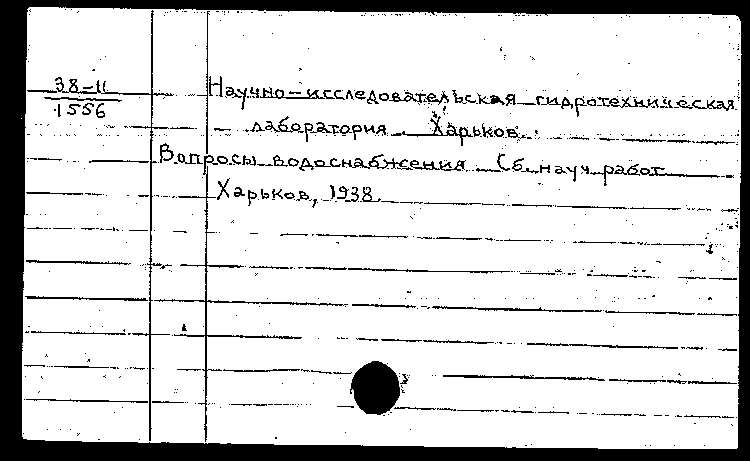 38-11
1556
Научно-исследовательская гидротехническая
лаборатория. Харьков.
Вопросы водоснабжения. Сб. науч. работ
Харьков, 1938.